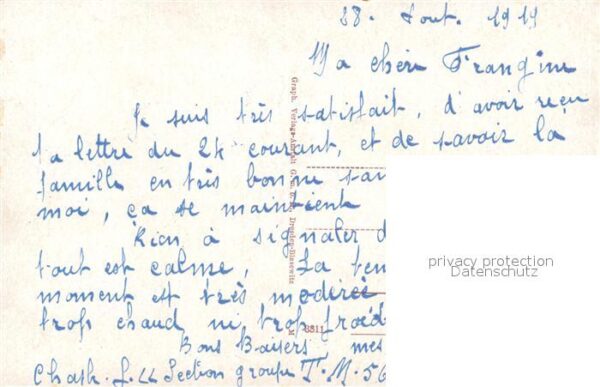 28. Aout. 1919
Ma chère Frangine
Je suis très satisfait, d'avoir reçu
ta lettre du 24 courant, et de savoir la
famille en très bonne san
moi, ça se maintient
Rien à signaler d
tout est calme, La tem
moment est très modérée
trop chaud ni trop froid
Bons Baisers mes
Section groupe T.M. 56
Graph. Verlags-Anstalt G. m. b. H., Dresden-Blasewitz
M 8311
privacy protection
Datenschutz